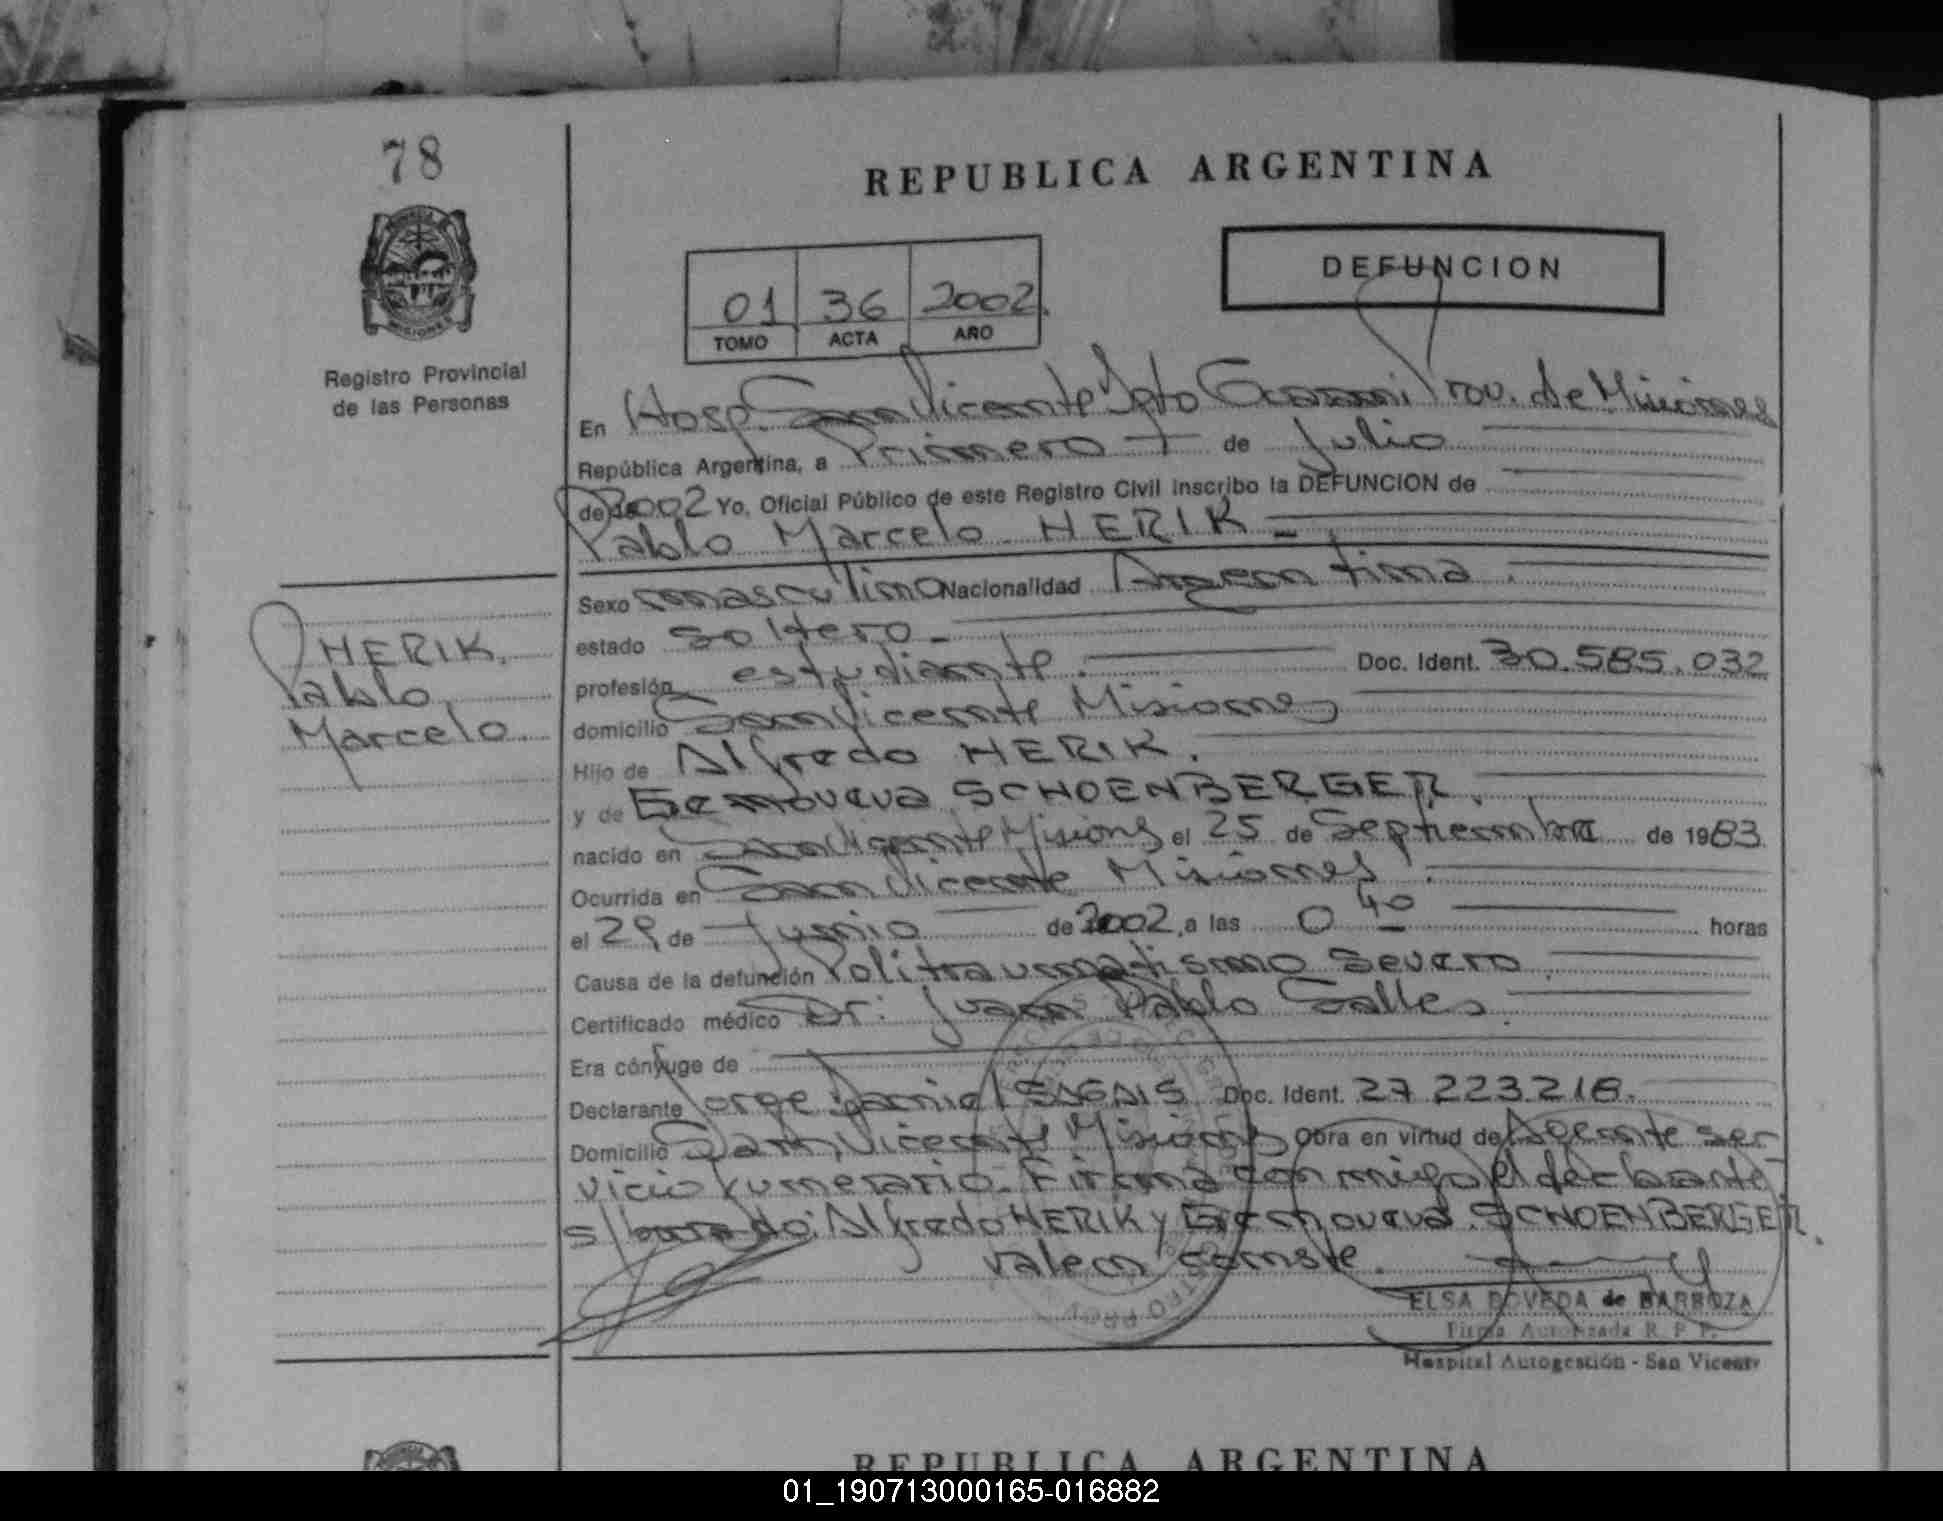 78
REPUBLICA ARGENTINA
DEFUNCION
01 36 2002
TOMO ACTA AÑO
Registro Provincial
de las Personas
En Hosp. San Vicente Dpto Guaraní Prov. de Misiones
República Argentina, a Primero de Julio
de 2002 Yo, Oficial Público de este Registro Civil inscribo la DEFUNCION de
Pablo Marcelo HERIK
HERIK,
Pablo
Marcelo.
Sexo masculino Nacionalidad Argentina.
estado soltero
profesión estudiante. Doc. Ident. 30.585.032
domicilio San Vicente Misiones
Hijo de Alfredo HERIK.
y de Genoveva SCHOENBERGER.
nacido en San Vicente Misiones el 25 de Septiembre de 1983
Ocurrida en San Vicente Misiones.
el 29 de Junio de 2002, a las 0 40 horas
Causa de la defunción Politraumatismo Severo.
Certificado médico Dr. Juan Pablo Salles.
Era cónyuge de
Declarante Jorge Daniel Doc. Ident. 27.223.218.
Domicilio San Vicente Misiones Obra en virtud de Agente ser-
vicio funerario. Firma conmigo el declarante
s/borrado: Alfredo HERIK y Genoveva SCHOENBERGER.
valen conste.
ELSA BOVEDA de BARBOZA
Firma Autorizada R. P. P.
Hospital Autogestión - San Vicente
REPUBLICA ARGENTINA
01_190713000165-016882